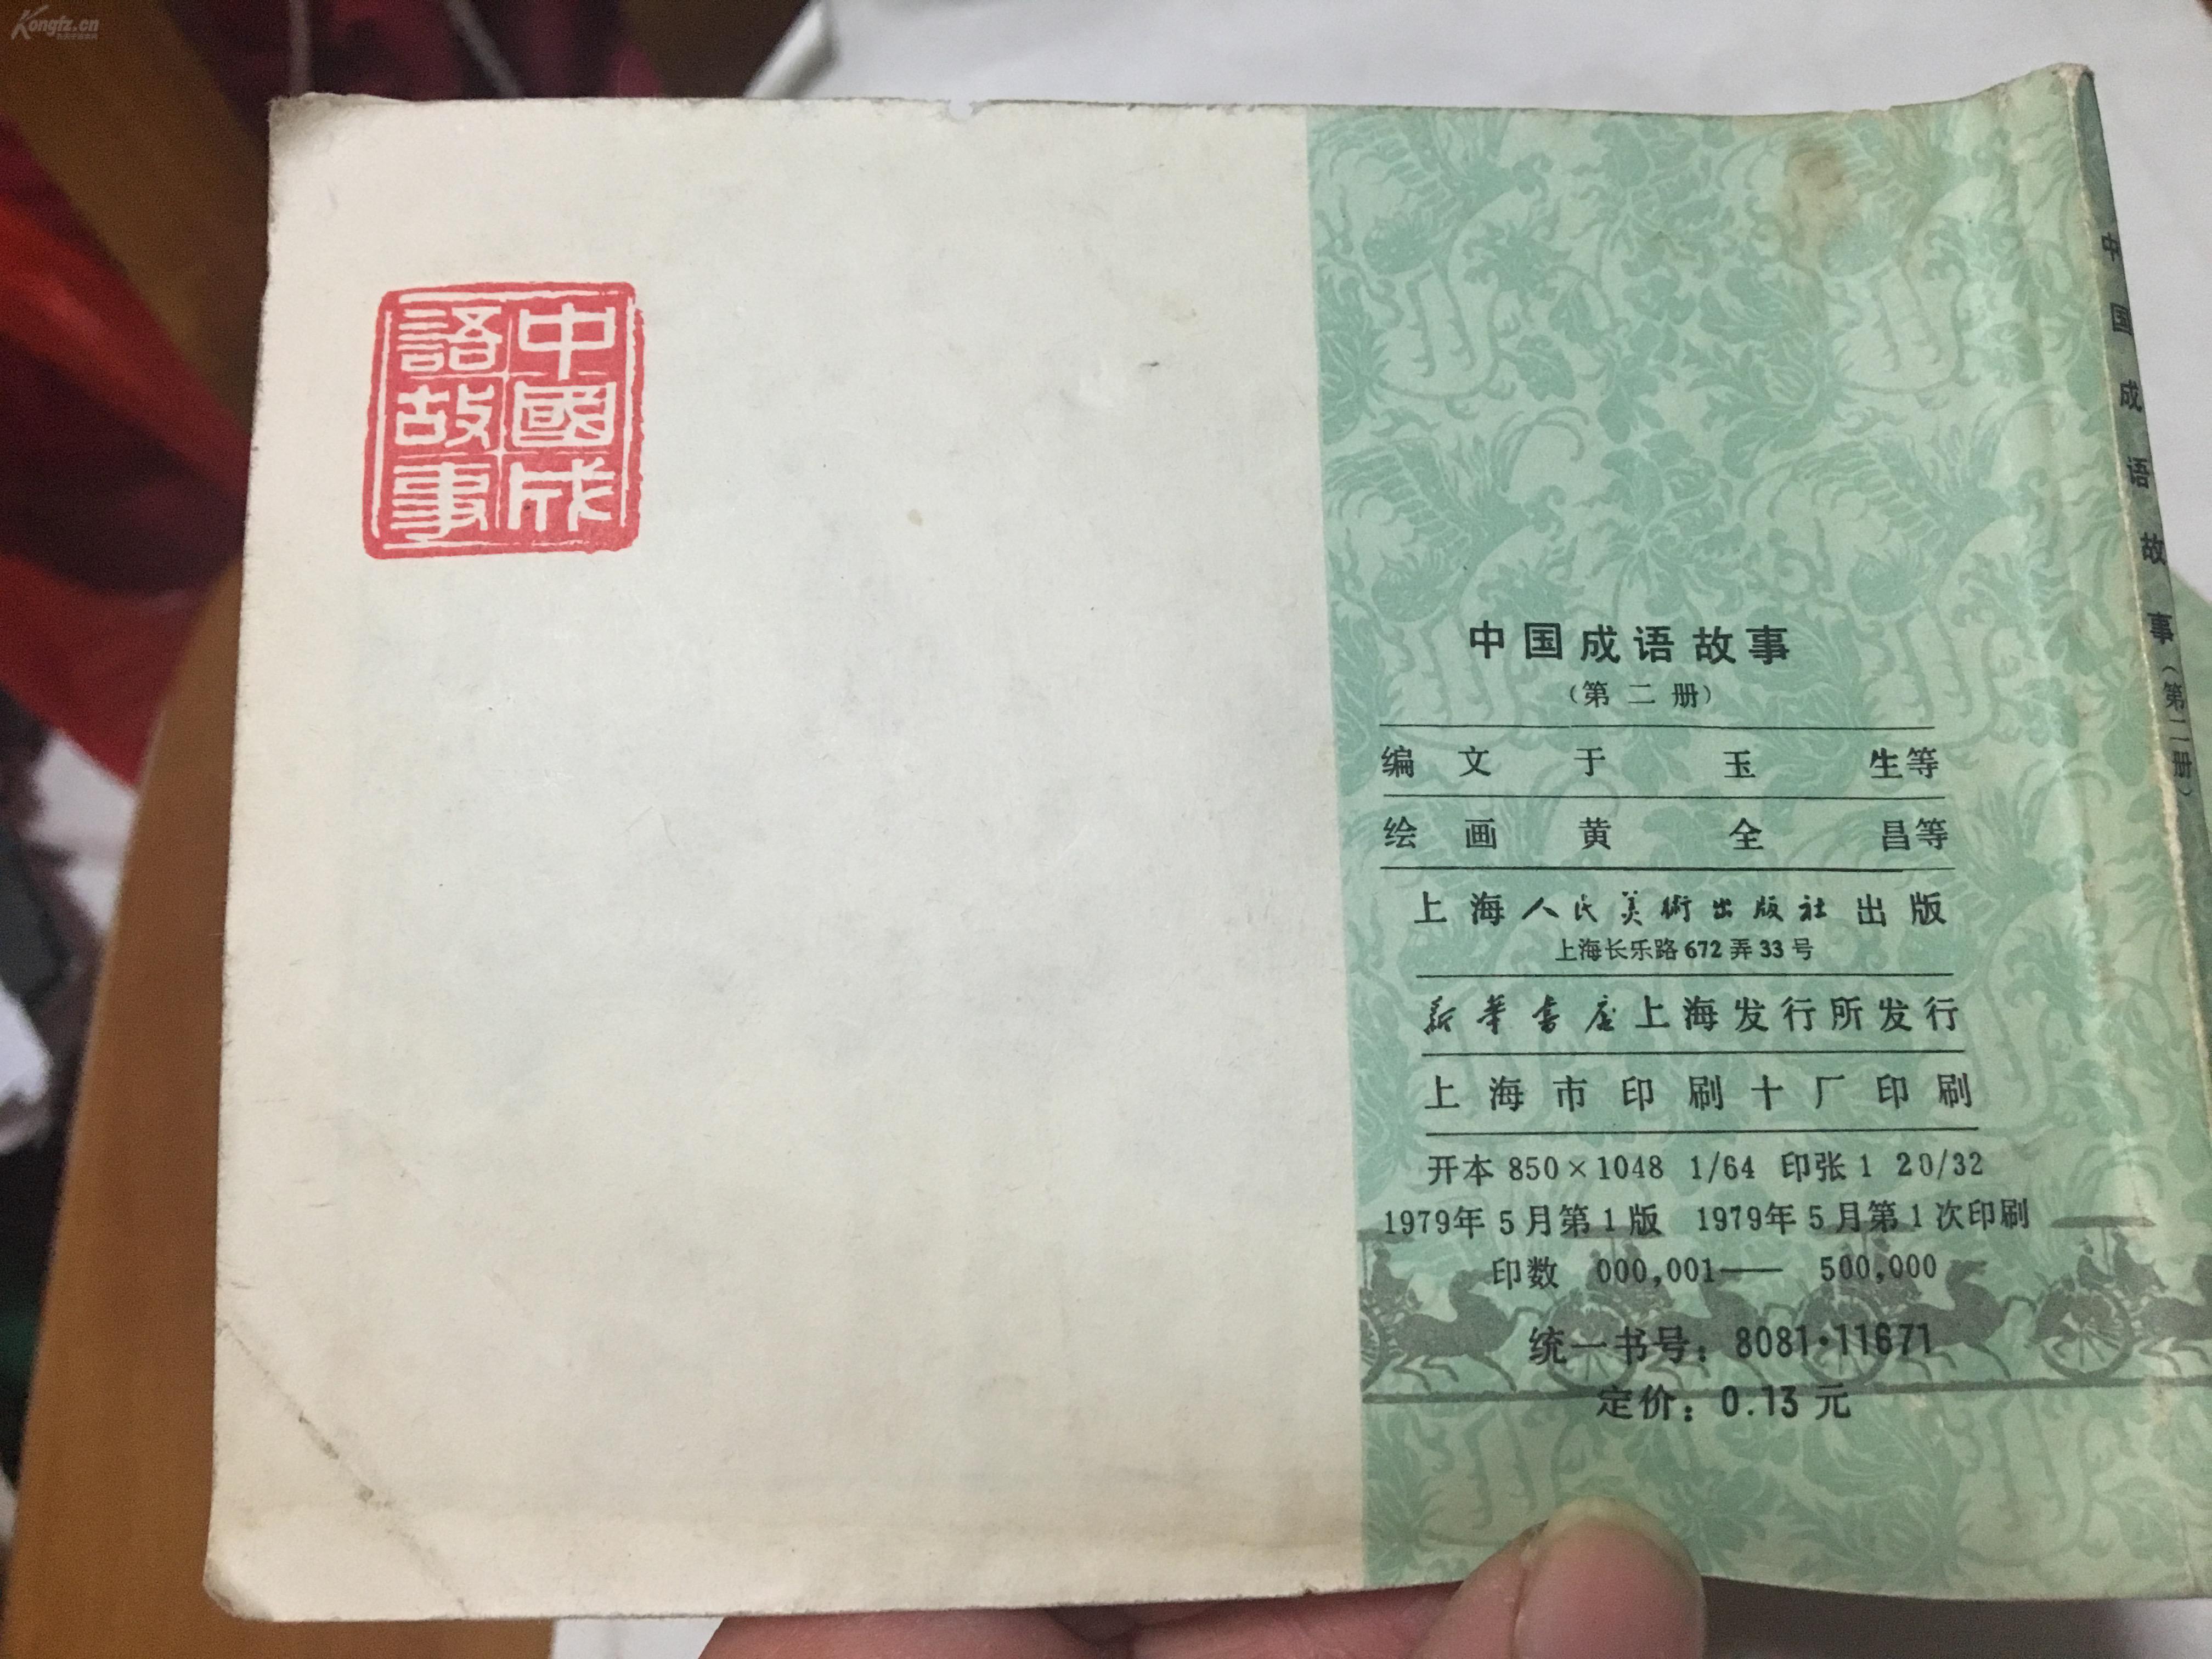 Kongfz.cn
中國成
語故事
中国成语故事
(第二册)
编文 于玉生等
绘画 黄全昌等
上海人民美術出版社出版
上海长乐路672弄33号
新华书店上海发行所发行
上海市印刷十厂印刷
开本 850×1048 1/64 印张 1 20/32
1979年5月第1版 1979年5月第1次印刷
印数 000,001—— 500,000
统一书号：8081·11671
定价：0.13元
中国成语故事(第二册)